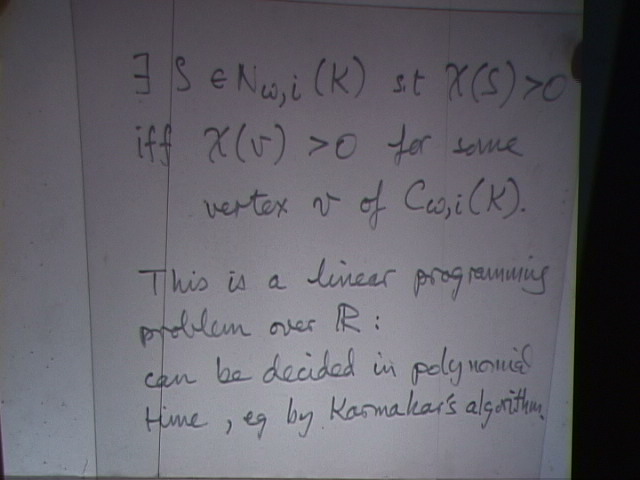 ∃ S ∈ N_{ω,i}(K) s.t χ(S) > 0
iff χ(v) > 0 for some
vertex v of C_{ω,i}(K).
This is a linear programming
problem over ℝ:
can be decided in polynomial
time, eg by Karmakar's algorithm.